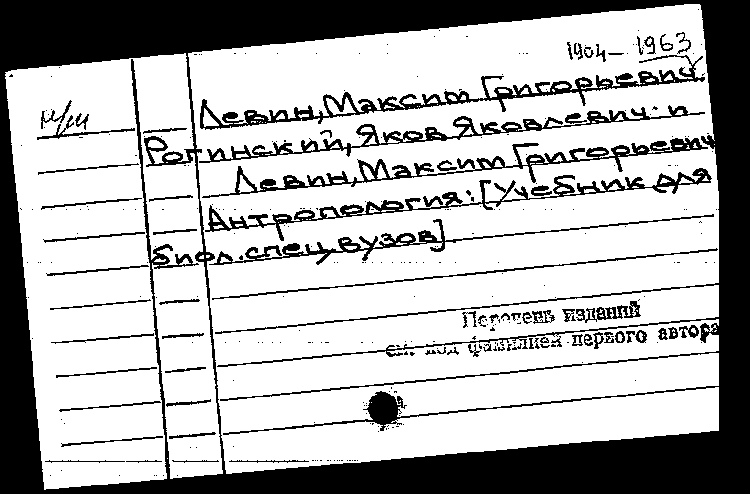 1904–1963
н/ш
Левин, Максим Григорьевич.
Рогинский, Яков Яковлевич. и
Левин, Максим Григорьевич
Антропология: [Учебник для
биол. спец. вузов]
Перечень изданий
см. под фамилией первого автора